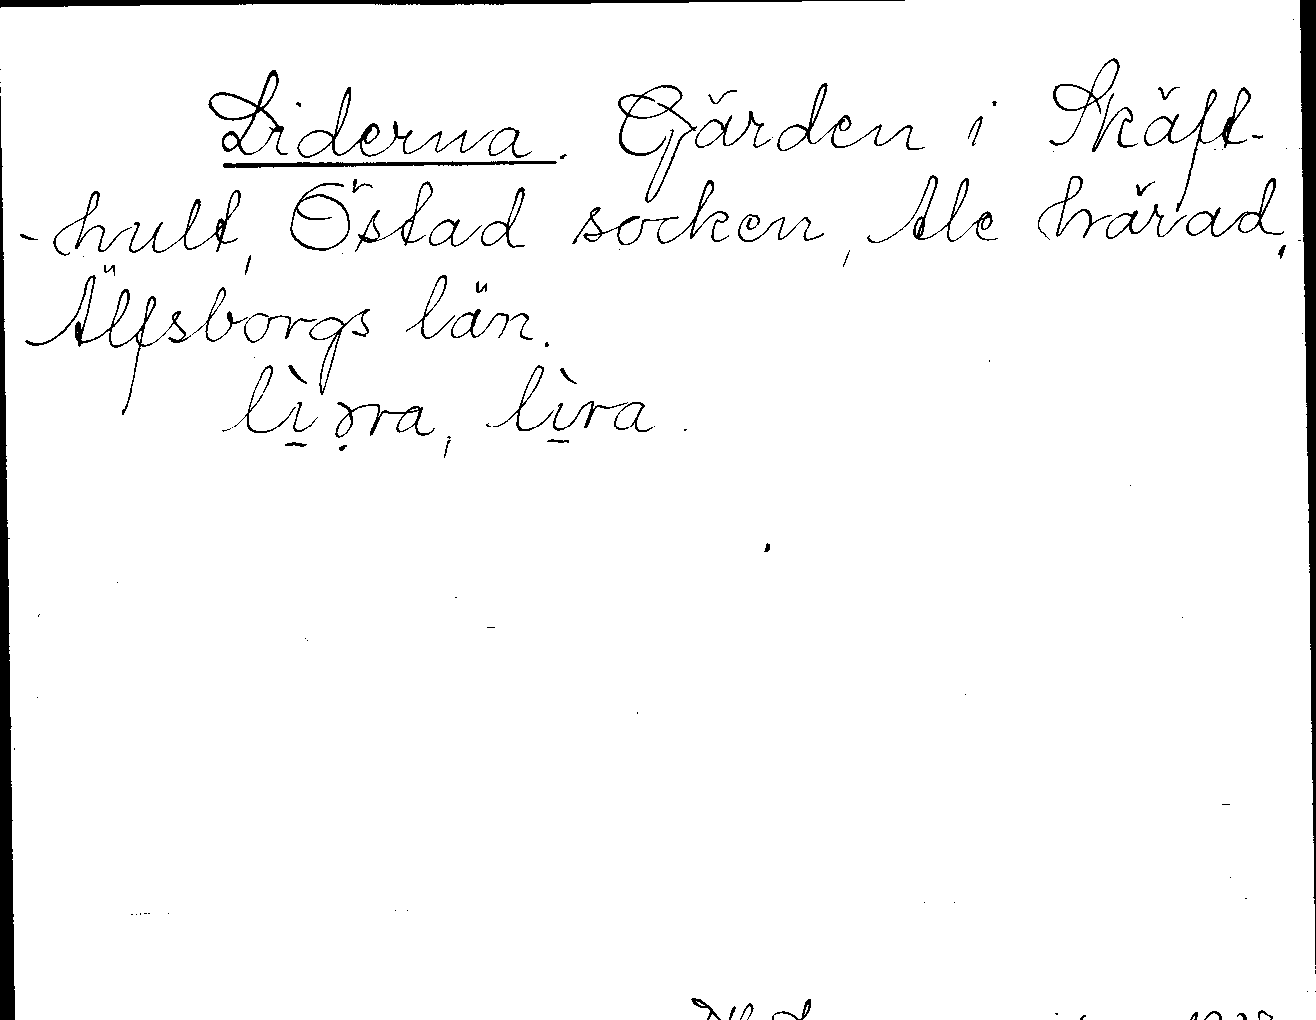 Liderna. Gärden i Skäft-
-hult, Östad socken, Ale härad,
Älfsborgs län.
lì̱ə̣rra, lì̱ra.